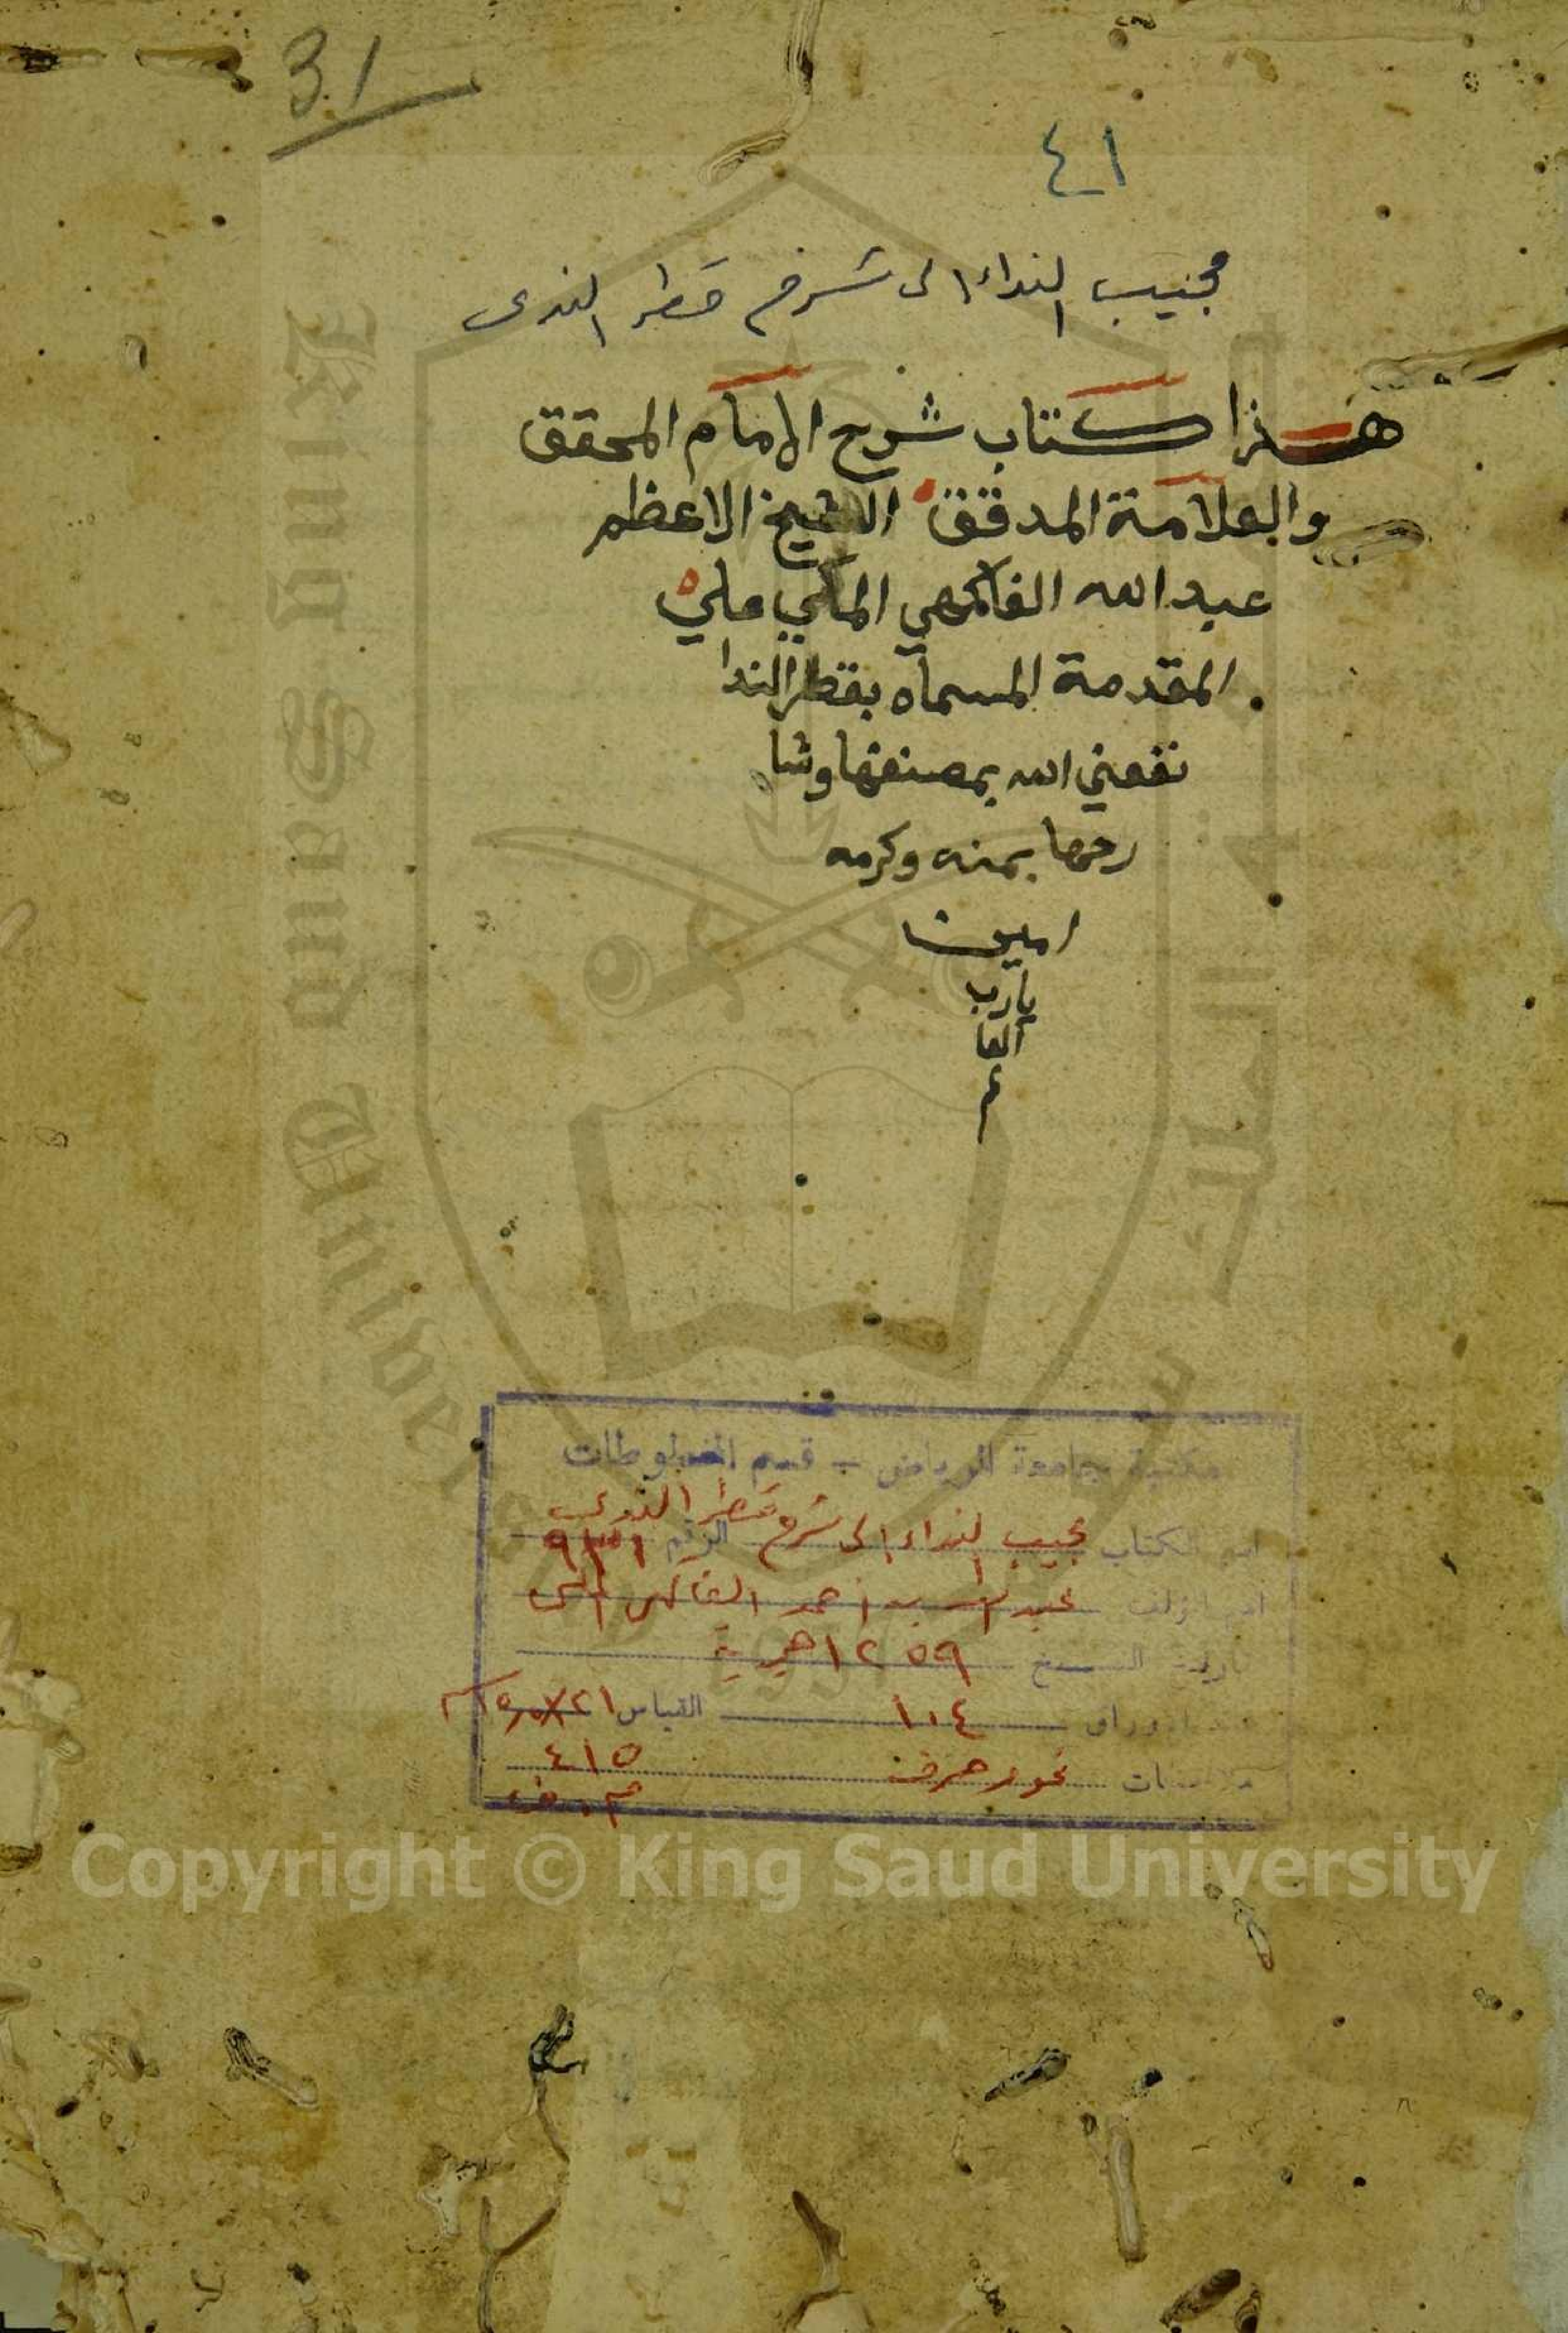 31
٤١
مجيب الندا الى شرح قطر الندى
هذا كتاب شرح الامام المحقق
والعلامة المدقق الشيخ الاعظم
عبد الله الفاكهي المكي علي
المقدمة المسماه بقطر الندا
نفعني الله بمصنفها وشا
رحها بمنه وكرمه
امين
يارب
العا
م
مكتبة جامعة الرياض - قسم المخطوطات
اسم الكتاب مجيب النداء الى شرح قطر الندى الرقم
اسم المؤلف عبد الله بن احمد الفاكهي المكي
تاريخ النسخ ١٢٥٩ هجرية
عدد الاوراق ١٠٤ القياس
ملاحظات نحو وصرف ٤١٥
Copyright © King Saud University
King Saud University
1957